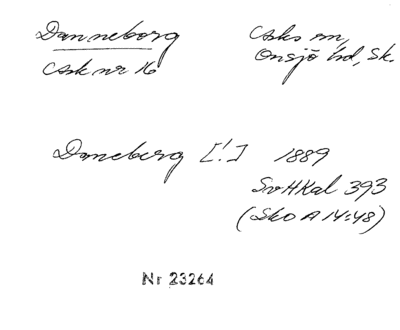 Danneborg
Ask nr 16
Asks sn,
Onsjö hd, Sk.
Daneberg [!] 1889
SvHKal 393
(SkO A 14:48)
Nr 23264